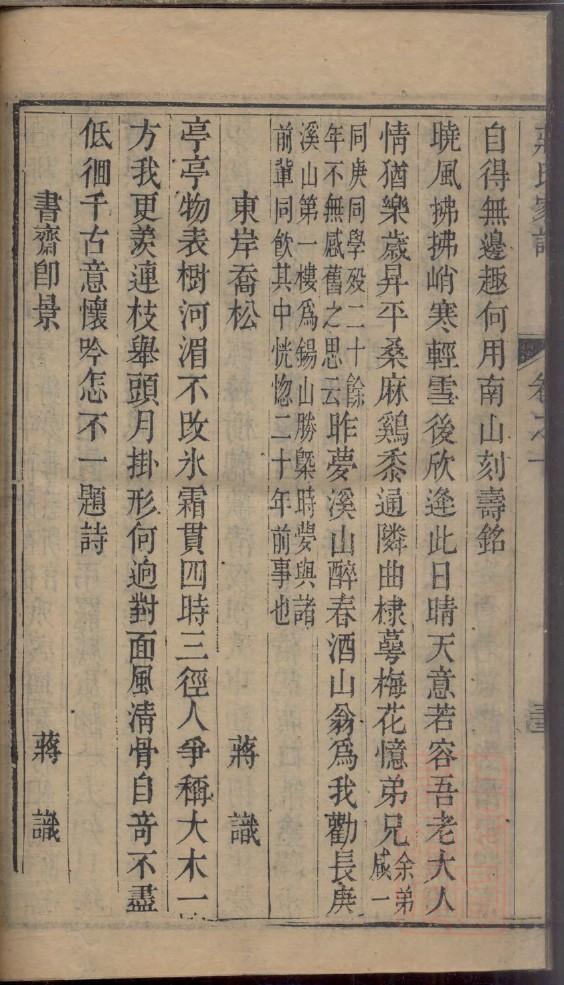 自得無邊趣何用南山刻壽銘
曉風拂拂峭寒輕雪後欣逢此日晴天意若容吾老大人
情猶樂歲昇平桑麻鷄黍通隣曲棣蕚梅花憶弟兄余弟咸一
同庚同學歿二十餘
年不無感舊之思云昨夢溪山醉春酒山翁爲我勸長庚
溪山第一樓爲錫山勝槩時夢與諸
前軰同飲其中恍惚二十年前事也
東岸喬松　蔣識
亭亭物表樹河湄不改氷霜貫四時三徑人爭稱大木一
方我更羨連枝舉頭月掛形何逈對面風清骨自竒不盡
低徊千古意懷吟怎不一題詩
書齋卽景　蔣識